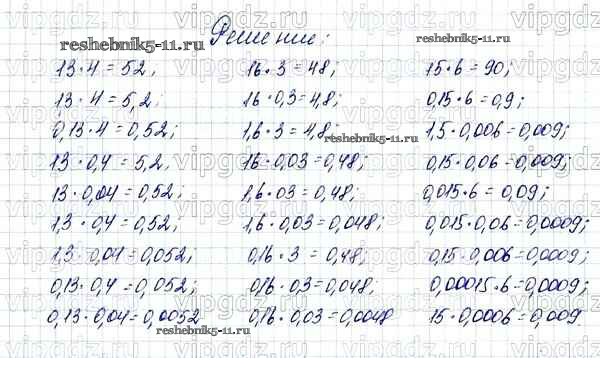 Решение:
13·4=52; 16·3=48; 15·6=90;
13·4=5,2; 16·0,3=4,8; 0,15·6=0,9;
0,13·4=0,52; 1,6·3=4,8; 1,5·0,006=0,009;
13·0,4=5,2. 16·0,03=0,48; 0,15·0,06=0,009;
13·0,04=0,52; 1,6·03=0,48; 0,015·6=0,09;
1,3·0,4=0,52; 1,6·0,03=0,048; 0,015·0,06=0,0009;
1,3·0,04=0,052; 0,16·3=0,48; 0,15·0,006=0,0009;
0,13·0,4=0,052; 0,16·0,3=0,048; 0,00015·6=0,0009;
0,13·0,04=0,0052 0,16·0,03=0,0048 15·0,0006=0,009.
reshebnik5-11.ru
reshebnik5-11.ru
reshebnik5-11.ru
reshebnik5-11.ru
vipgdz.ru